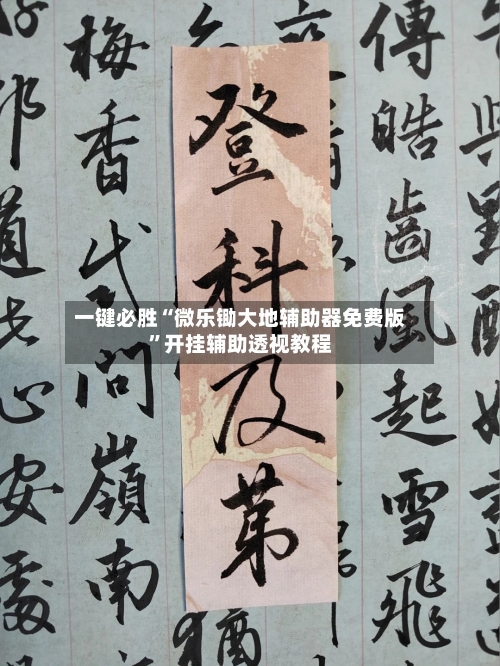 傳皓齒風起雪飛
登科及第
猶
梅香試問嶺南
道
心安處
一键必胜“微乐锄大地辅助器免费版
”开挂辅助透视教程